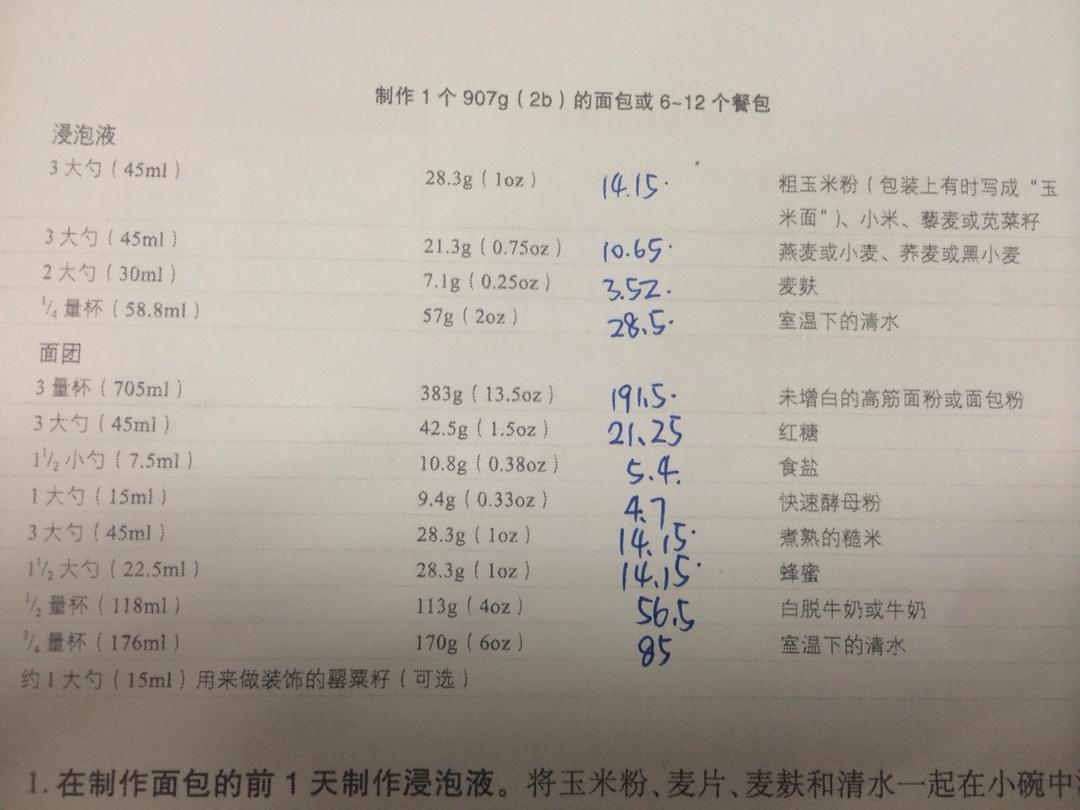 制作 1 个 907g（2b）的面包或 6~12 个餐包
浸泡液
3 大勺（45ml） 28.3g（1oz） 14.15. 粗玉米粉（包装上有时写成“玉
米面”）、小米、藜麦或苋菜籽
3 大勺（45ml） 21.3g（0.75oz） 10.65. 燕麦或小麦、荞麦或黑小麦
2 大勺（30ml） 7.1g（0.25oz） 3.52. 麦麸
1/4 量杯（58.8ml） 57g（2oz） 28.5. 室温下的清水
面团
3 量杯（705ml） 383g（13.5oz） 191.5. 未增白的高筋面粉或面包粉
3 大勺（45ml） 42.5g（1.5oz） 21.25 红糖
1 1/2 小勺（7.5ml） 10.8g（0.38oz） 5.4. 食盐
1 大勺（15ml） 9.4g（0.33oz） 4.7 快速酵母粉
3 大勺（45ml） 28.3g（1oz） 14.15. 煮熟的糙米
1 1/2 大勺（22.5ml） 28.3g（1oz） 14.15. 蜂蜜
1/2 量杯（118ml） 113g（4oz） 56.5 白脱牛奶或牛奶
3/4 量杯（176ml） 170g（6oz） 85 室温下的清水
约 1 大勺（15ml）用来做装饰的罂粟籽（可选）
1. 在制作面包的前 1 天制作浸泡液。将玉米粉、麦片、麦麸和清水一起在小碗中